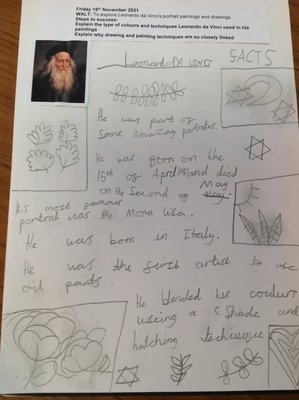 Friday 19th November 2021
WALT: To explore Leonardo da Vinci's portrait paintings and drawings
Steps to success:
Explain the type of colours and techniques Leonardo da Vinci used in his
paintings
Explain why drawing and painting techniques are so closely linked
Leonardo DA VINCI FACTS
He was part of
some Amazing portraits.
He was Born on the
15th of April and died
on the second of May
His most famous
portrait was the Mona Lisa.
He was born in Italy.
He was the first artist to use
oil paints.
He blended his colours
useing a shade and
hatching technique